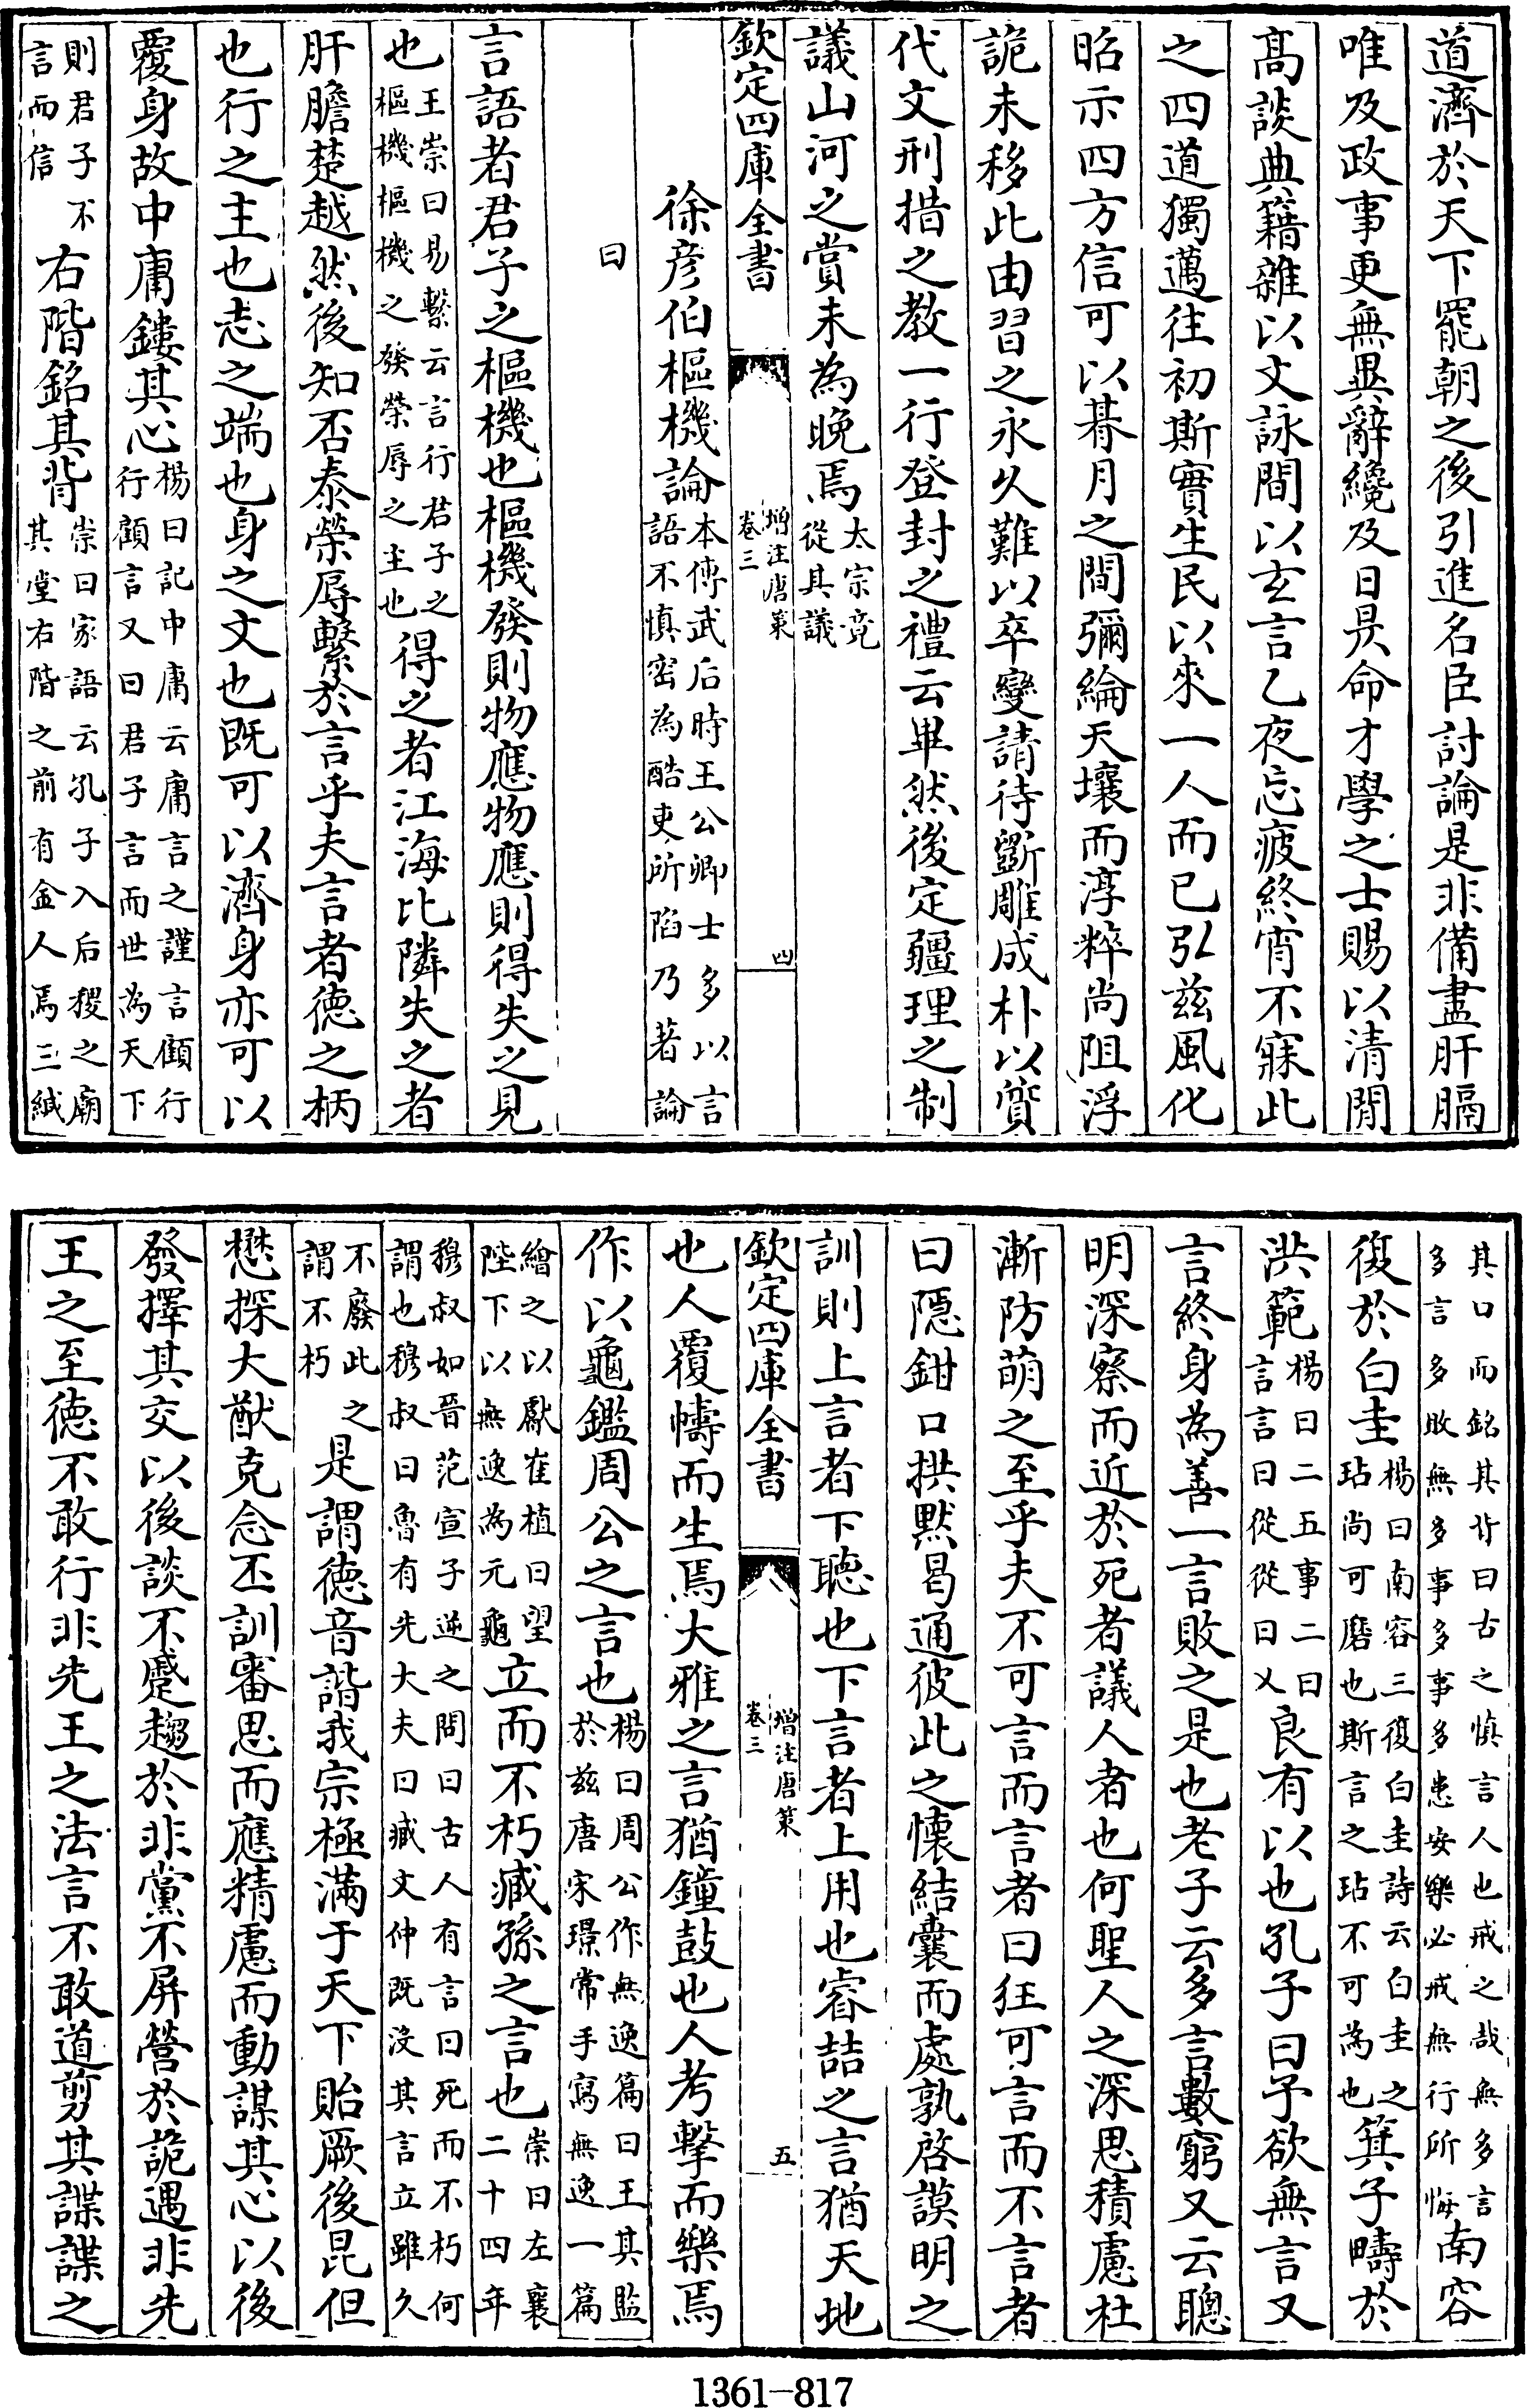 道濟於天下罷朝之後引進名臣討論是非備盡肝膈
唯及政事更無異辭纔及日昃命才學之士賜以清閒
髙談典籍雜以文詠間以玄言乙夜忘疲終宵不寐此
之四道獨邁往初斯實生民以來一人而已弘兹風化
昭示四方信可以朞月之間彌綸天壤而淳粹尚阻浮
詭未移此由習之永久難以卒變請待斵雕成朴以質
代文刑措之教一行登封之禮云畢然後定疆理之制
議山河之賞未為晚焉太宗竟從其議
欽定四庫全書 増注唐策 卷三 四
徐彦伯樞機論本傳武后時王公卿士多以言語不慎密為酷吏所陷乃著論
曰
言語者君子之樞機也樞機發則物應物應則得失之見
也王崇曰易繫云言行君子之樞機樞機之發榮辱之主也得之者江海比隣失之者
肝膽楚越然後知否泰榮辱繫於言乎夫言者德之柄
也行之主也志之端也身之文也既可以濟身亦可以
覆身故中庸鏤其心楊曰記中庸云庸言之謹言顧行行顧言又曰君子言而世為天下
則君子不言而信右階銘其背崇曰家語云孔子入后稷之廟其堂右階之前有金人焉三緘
其口而銘其背曰古之慎言人也戒之哉無多言多言多敗無多事多事多患安樂必戒無行所悔南容
復於白圭楊曰南容三復白圭詩云白圭之玷尚可磨也斯言之玷不可為也箕子疇於
洪範楊曰二五事二曰言言曰從從曰乂良有以也孔子曰予欲無言又
言終身為善一言敗之是也老子云多言數窮又云聰
明深察而近於死者議人者也何聖人之深思積慮杜
漸防萌之至乎夫不可言而言者曰狂可言而不言者
曰隱鉗口拱默曷通彼此之懷結囊而處孰啓謨明之
訓則上言者下聽也下言者上用也睿喆之言猶天地
欽定四庫全書 増注唐策 卷三 五
也人覆幬而生焉大雅之言猶鐘鼓也人考擊而樂焉
作以龜鑑周公之言也楊曰周公作無逸篇曰王其監於兹唐宋璟常手寫無逸一篇
繪之以獻崔植曰望陛下以無逸為元龜立而不朽臧孫之言也崇曰左襄二十四年
穆叔如晉范宣子逆之問曰古人有言曰死而不朽何謂也穆叔曰魯有先大夫曰臧文仲既没其言立雖久
不廢此之謂不朽是謂德音詣我宗極滿于天下貽厥後昆但
懋探大猷克念丕訓審思而應精慮而動謀其心以後
發擇其交以後談不蹙趨於非黨不屏營於詭遇非先
王之至徳不敢行非先王之法言不敢道剪其諜諜之
1361-817